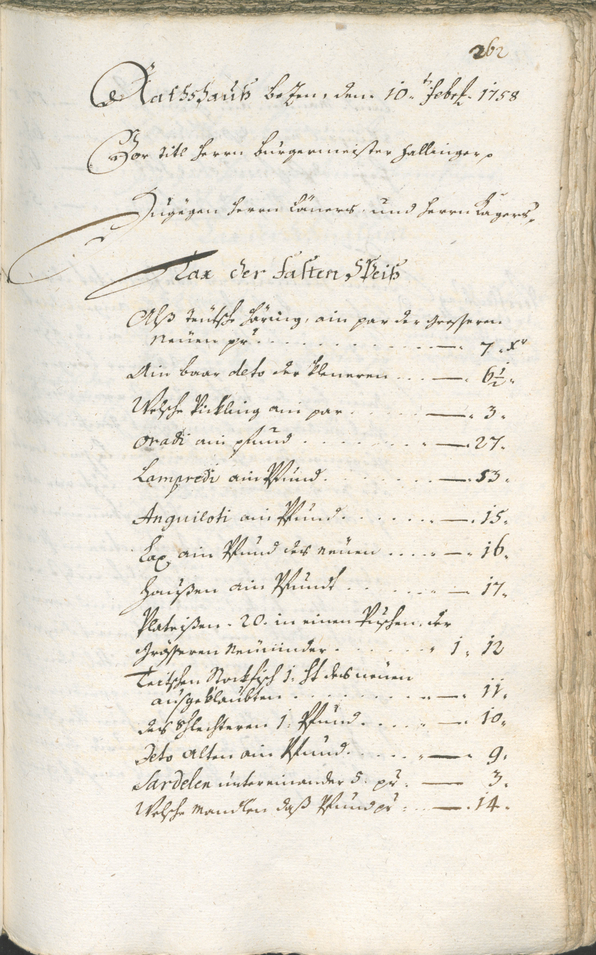 262
Rathshauß bozen den 10t Febr. 1758
Vor titl herrn burgermeister hallinger
Zugegen herrn und herrn
Tax der Fasten Speiß
Alß teütsche häring, ain par der grösseren
neüen pr — 7 xr
Ain baar deto der kleneren — 6½
Welsche Pickling ain par — 3
oradi ain pfund — 27
Lampredi ain Pfund — 53
Anguiloti ain Pfund — 15
Lax ain Pfund des neüen — 16
Haußen ain Pfundt — 17
Plateißen 20 in einem der
grösseren 1 12
Teitschen Stockfisch 1 des neüen
ausgeklaubten — 11
des schlechteren 1 Pfund — 10
deto alten ain Pfund — 9
Sardelen untereinander 5 pr — 3
Welsche Mandlen daß Pfund pr — 14